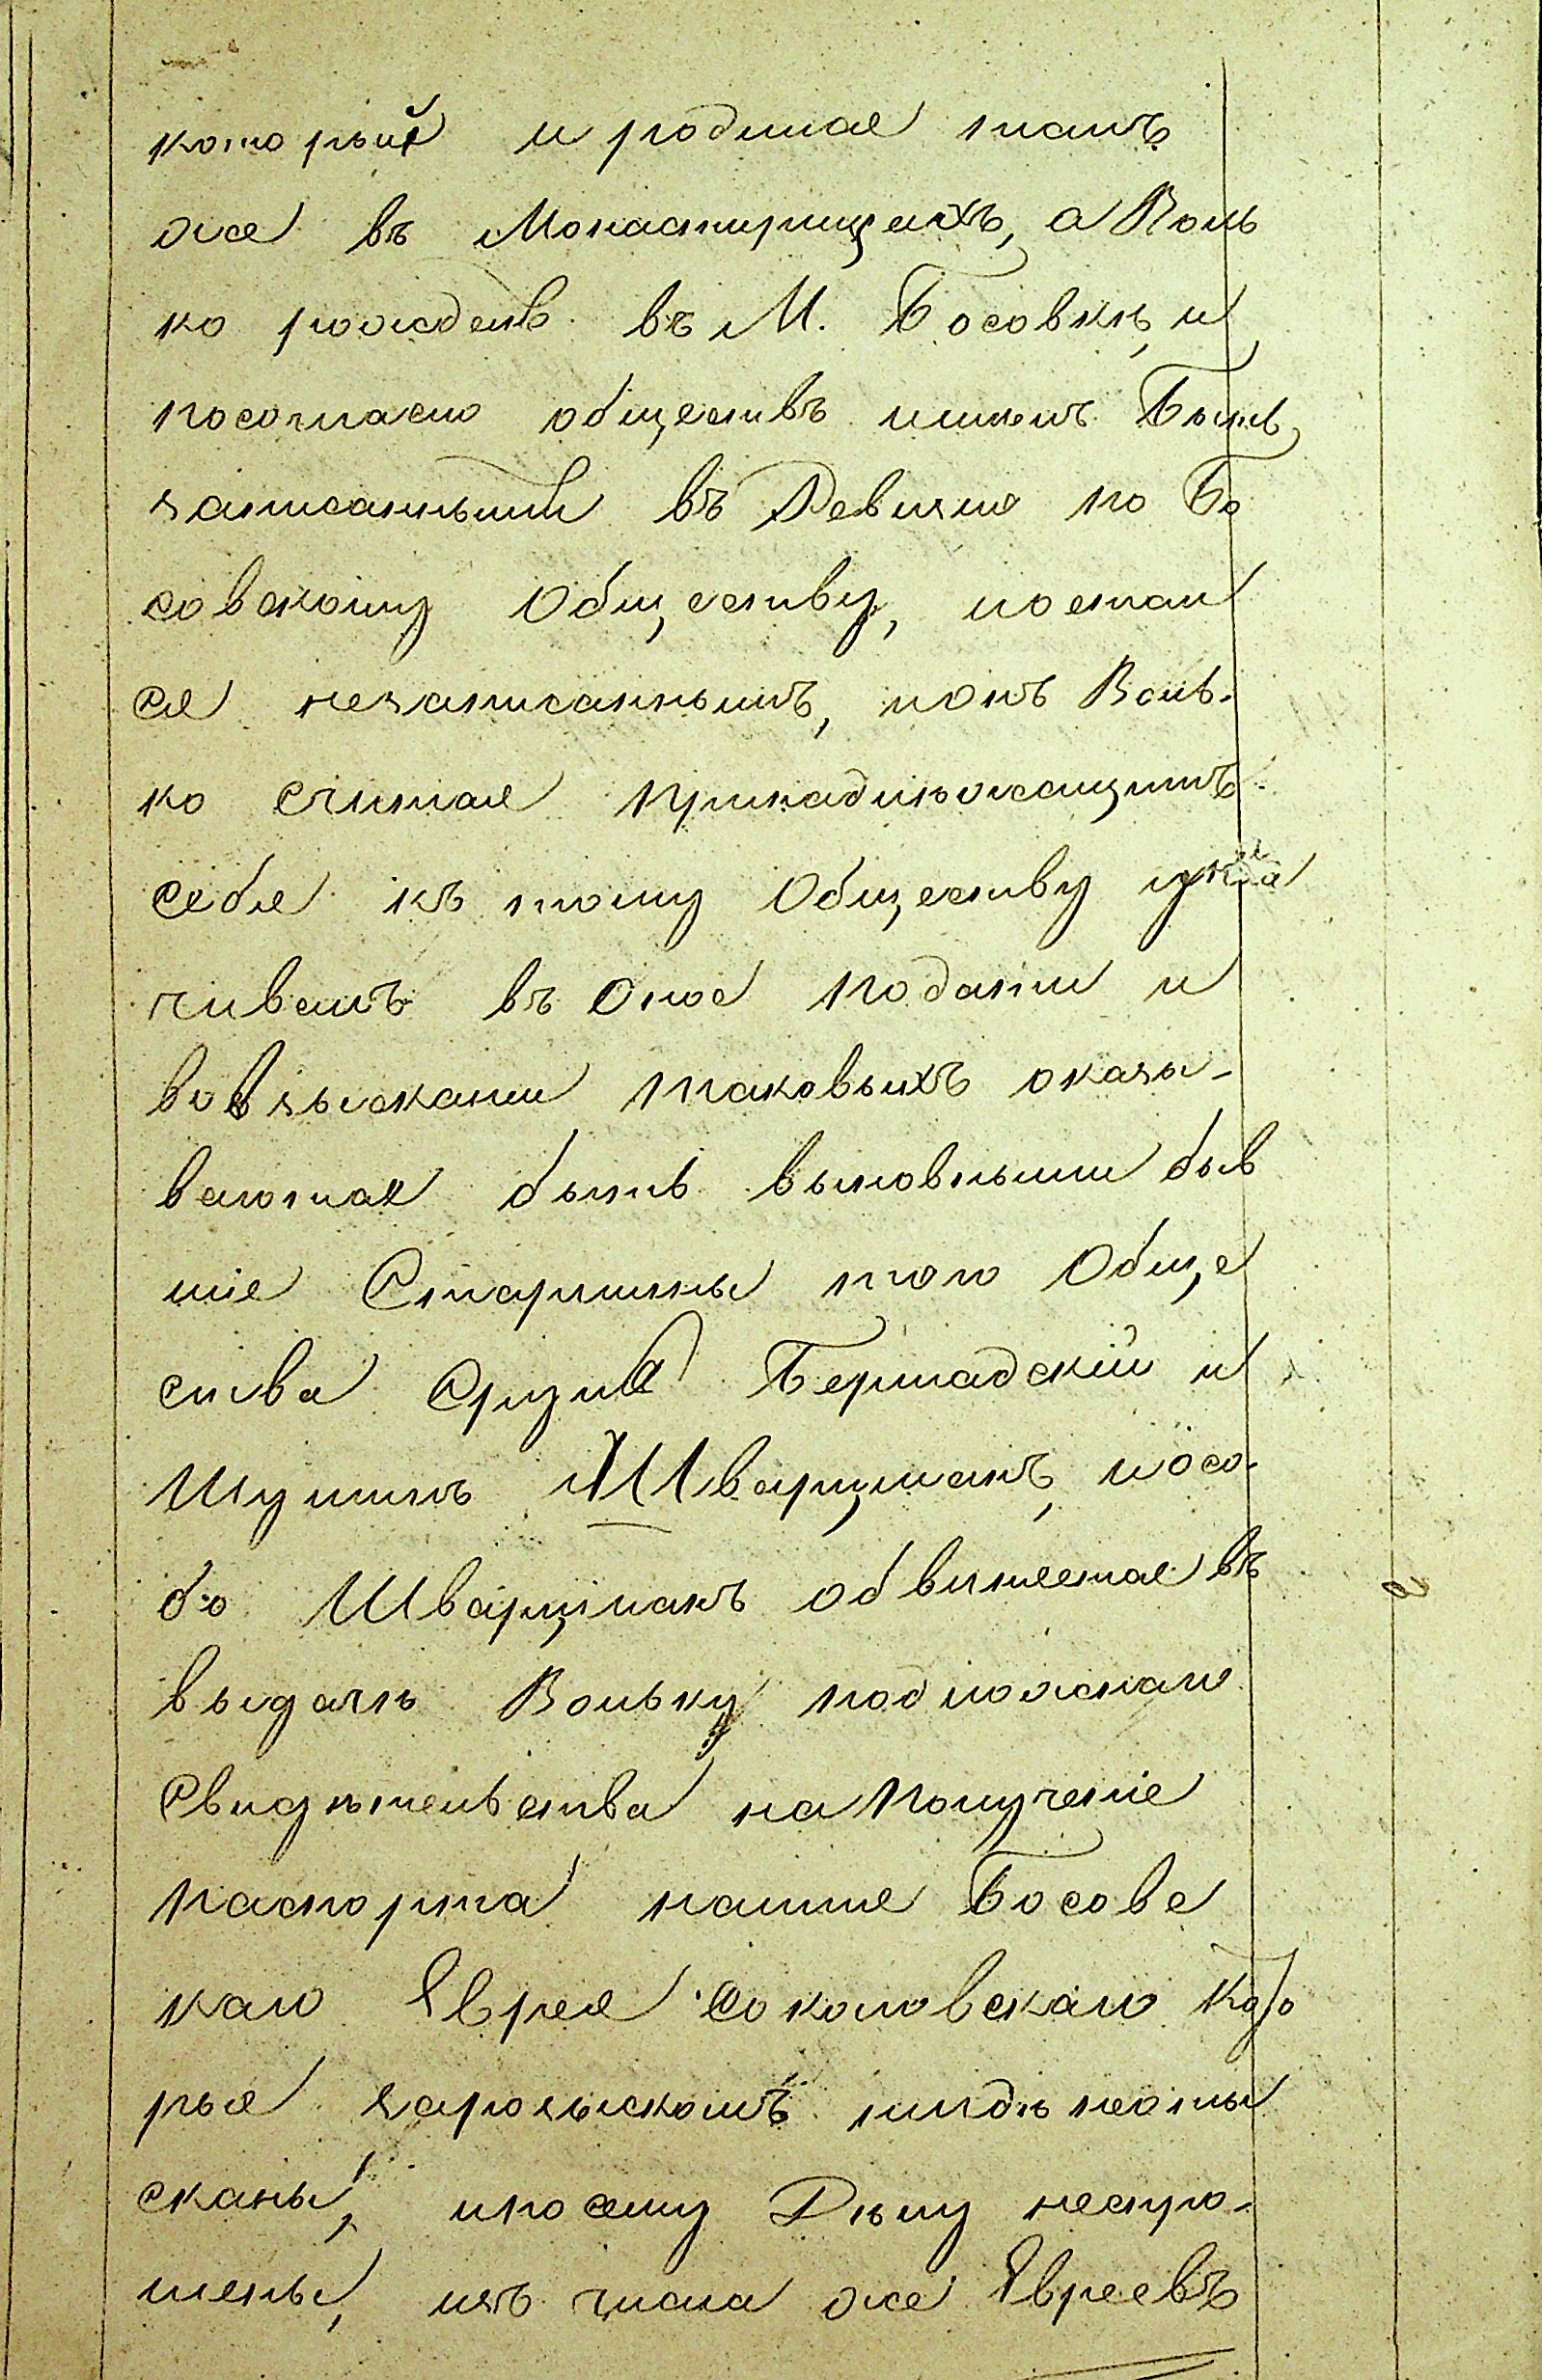 который и родился тамъ
же въ Монастырищахъ, а Воль
ко рожденъ въ М. Босовкѣ, и
посогласію обществъ имѣлъ быть
записаннымъ въ Ревизію по Бо
совскому Обществу, но остал
ся незаписаннымъ, но онъ Воль-
ко считая принадлѣжащимъ
себя къ тому Обществу упла
чивалъ въ оное подати и
во взысканіи таковыхъ оказы-
ваются быть виновными быв
шіе Старшины того Обще
ства Сруль Бершадскій и
Шулимъ Шварцманъ, и осо-
бо Шварцманъ обвиняется въ
выдачѣ Вольку подложнаго
Свидѣтельства на получение
паспорта на имя Босовс
каго Еврея Соколовскаго кото
рые зарозыскомъ нигдѣ неоты
сканы, и по сему Дѣлу неспро-
шены, изъ числа же Евреевъ